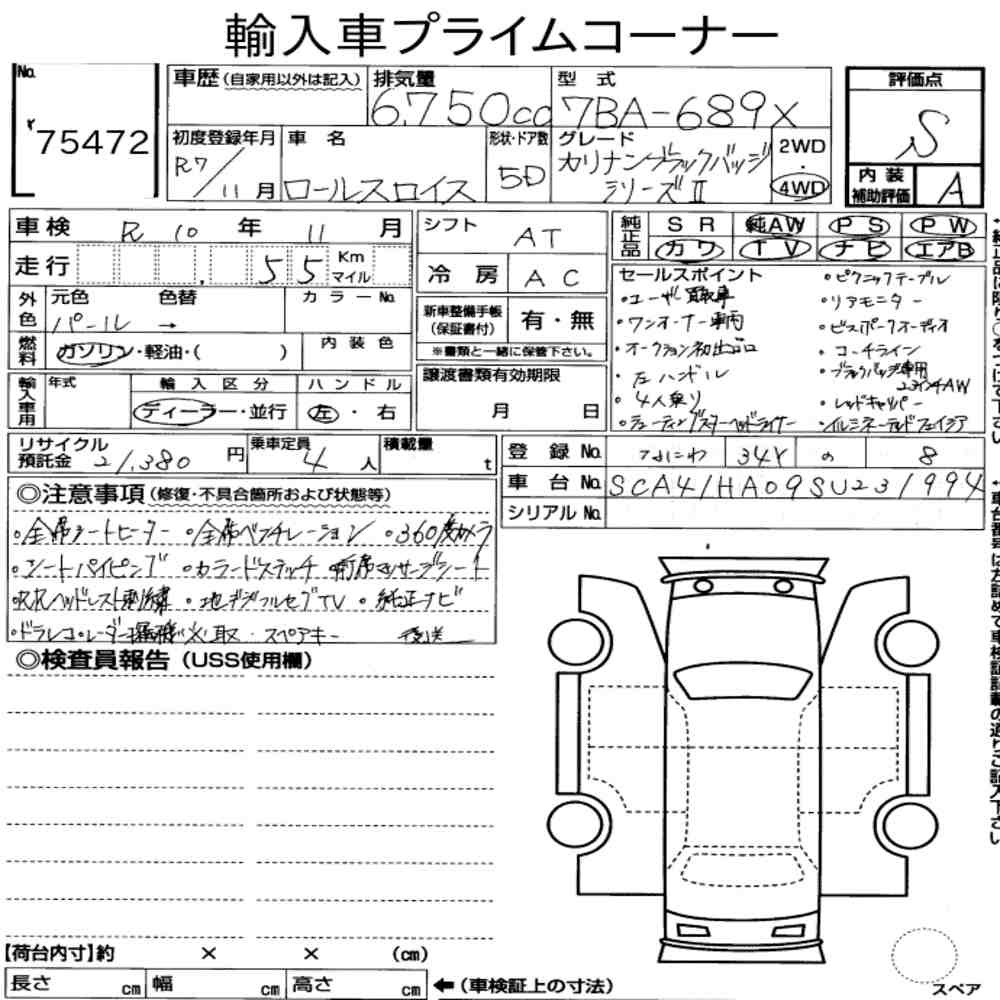 輸入車プライムコーナー
No.
75472
車歴(自家用以外は記入)
排気量
6,750cc
型式
7BA-689X
評価点
S
初度登録年月
R7/11月
車名
ロールスロイス
形状・ドア数
5D
グレード
カリナンブラックバッジ
シリーズⅡ
2WD
・
4WD
内装
補助評価
A
車検 R10年 11月
シフト AT
純正品
SR 純AW PS PW
カワ TV ナビ エアB
走行 55 Km マイル
冷房 AC
外色
元色 色替 カラーNo.
パール →
新車整備手帳
(保証書付)
有・無
※書類と一緒に保管下さい。
燃料
ガソリン・軽油・( )
内装色
輸入車用
年式
輸入区分
ディーラー・並行
ハンドル
左・右
譲渡書類有効期限
月 日
セールスポイント
・ユーザー買取車
・ワンオーナー車両
・オークション初出品
・左ハンドル
・4人乗り
・シューティングスターヘッドライナー
・ピクニックテーブル
・リアモニター
・ビスポークオーディオ
・コーチライン
・ブラックバッジ専用
23インチAW
・レッドキャリパー
・イルミネーテッドフェイシア
リサイクル
預託金 21,380円
乗車定員 4人
積載量 t
登録No. なにわ 344 の 8
車台No. SCA41HA09SU231994
シリアルNo.
◎注意事項(修復・不具合箇所および状態等)
・全席シートヒーター ・全席ベンチレーション ・360度カメラ
・シートパイピング ・カラードステッチ ・前席マッサージシート
・RRヘッドレスト刺繍 ・地デジフルセグTV ・純正ナビ
・ドラレコ・レーダー探知機 取 ・スペアキー 後送
◎検査員報告(USS使用欄)
【荷台内寸】約 × × (cm)
長さ cm 幅 cm 高さ cm ←(車検証上の寸法)
スペア